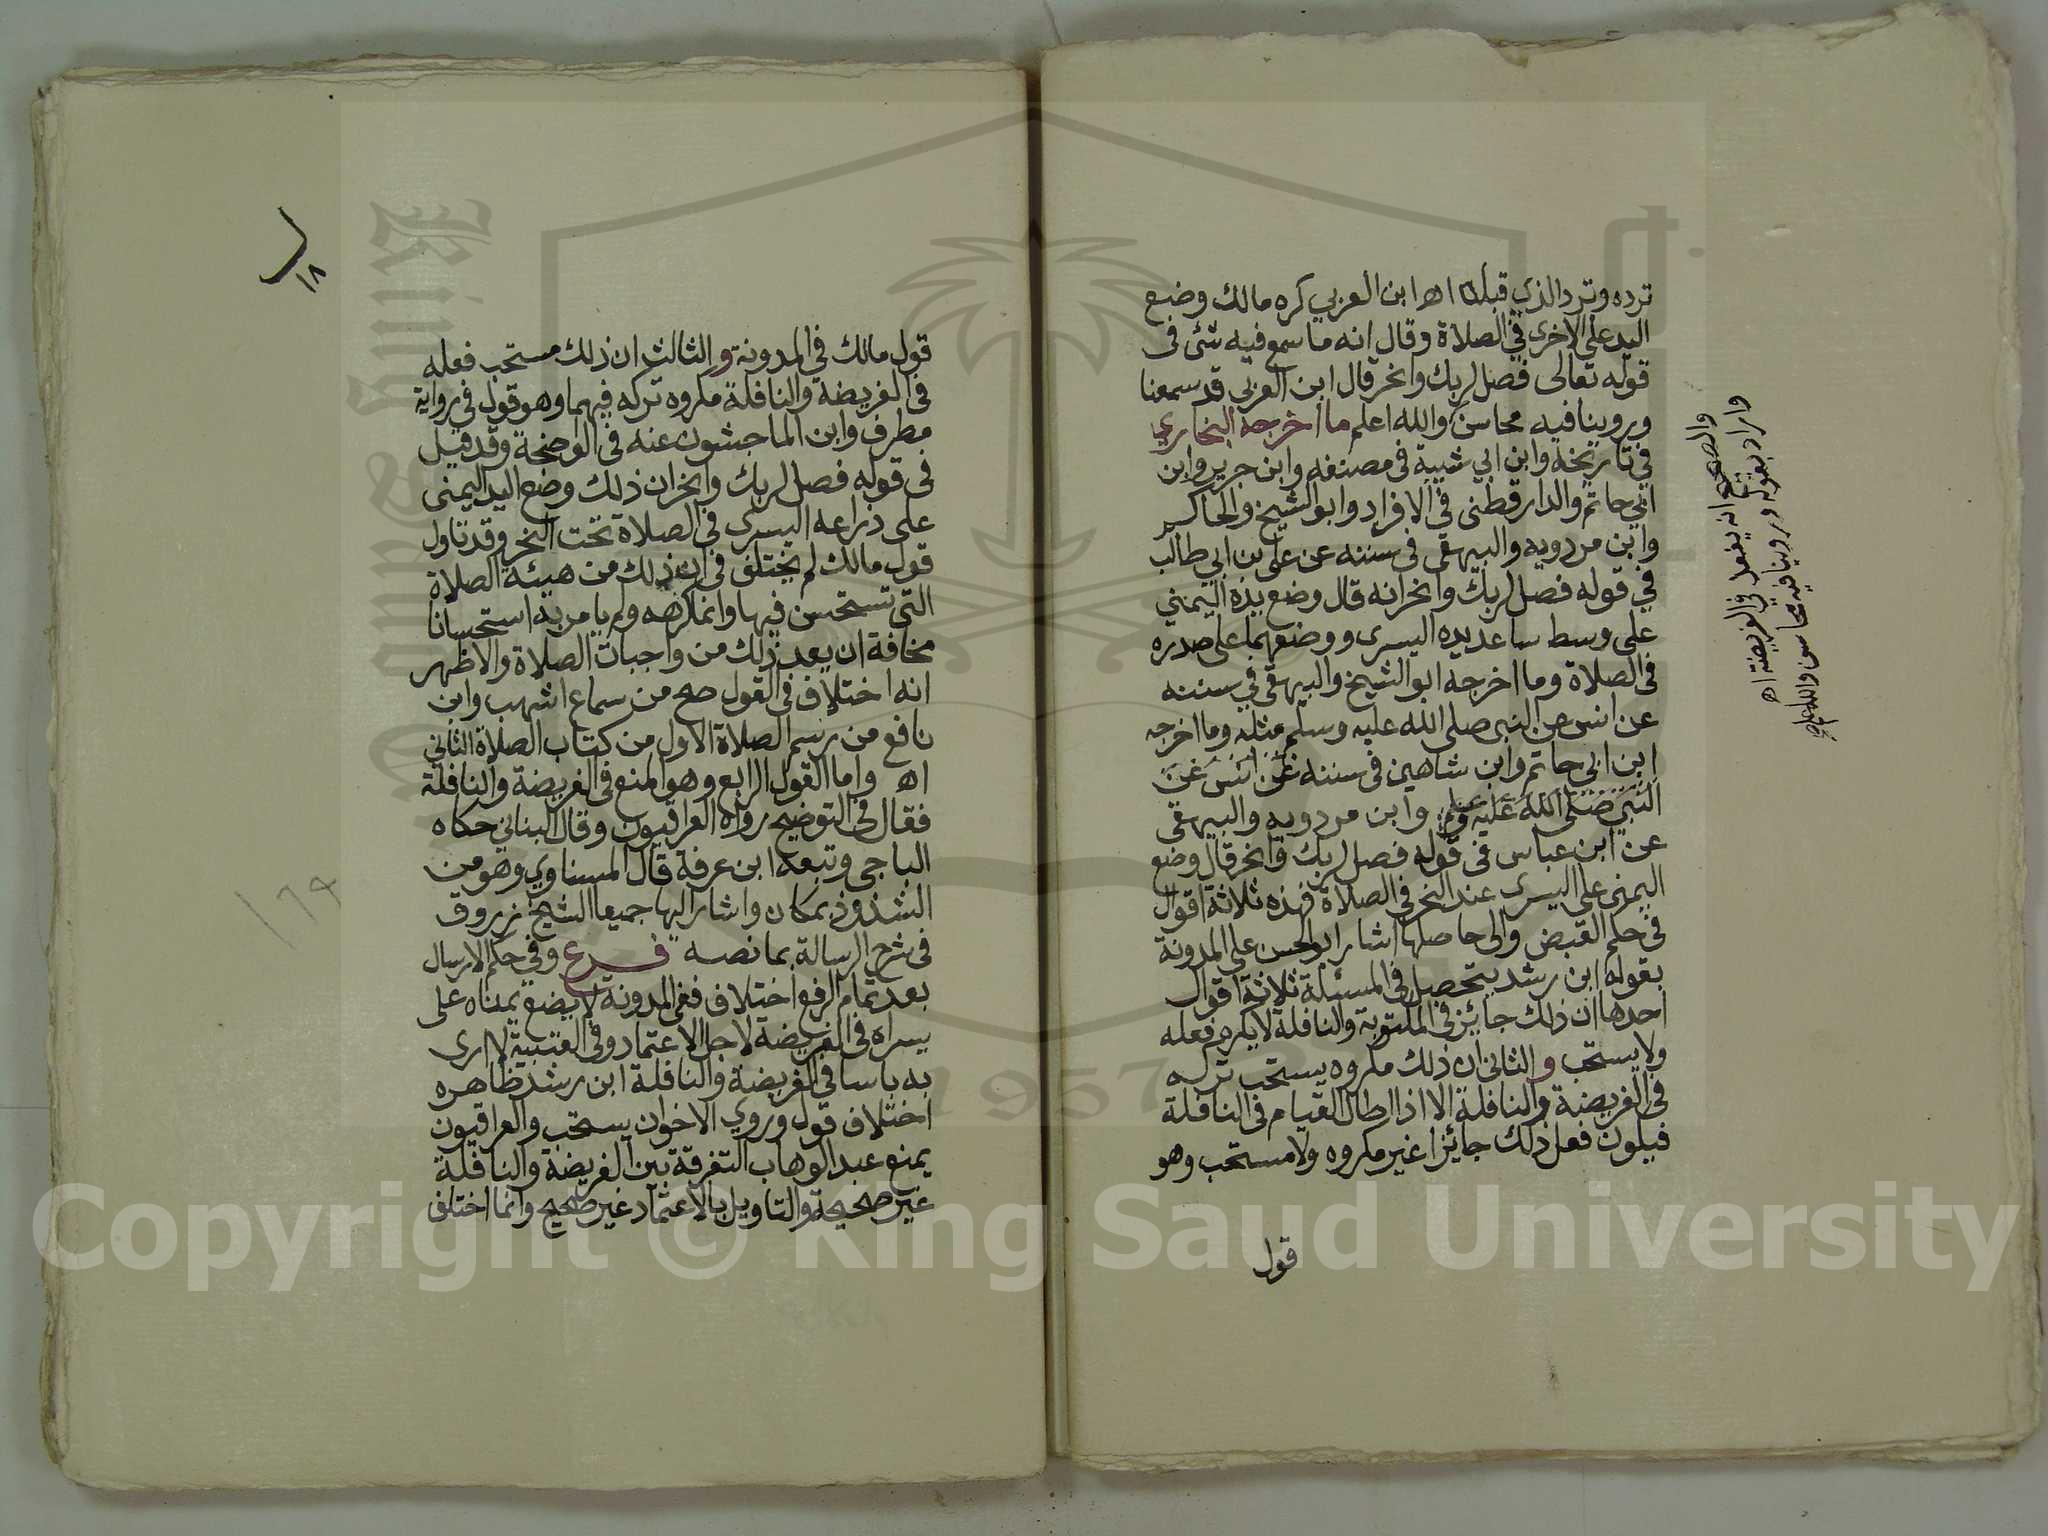 ترده وترد الذي قبله اه ابن العربي كره مالك وضع
اليد على الاخرى في الصلاة وقال انه ما سمع فيه شئ في
قوله تعالى فصل لربك وانحر قال ابن العربي قد سمعنا
وروينا فيه محاسن والله اعلم ما اخرجه البخاري
في تاريخه وابن ابي شيبة في مصنفه وابن جرير وابن
ابي حاتم والدارقطني في الافراد وابو الشيخ والحاكم
وابن مردويه والبيهقي في سننه عن علي بن ابي طالب
في قوله فصل لربك وانحر انه قال وضع يده اليمني
على وسط ساعد يده اليسرى ووضعهما على صدره
في الصلاة وما اخرجه ابو الشيخ والبيهقي في سننه
عن انس عن النبي صلى الله عليه وسلم مثله وما اخرجه
ابن ابي حاتم وابن شاهين في سننه عن انس عن
النبي صلى الله عليه وسلم وابن مردويه والبيهقي
عن ابن عباس في قوله فصل لربك وانحر قال وضع
اليمنى على اليسرى عند النحر في الصلاة فهذه ثلاثة اقوال
في حكم القبض والى حاصلها اشار ابو الحسن على المدونة
بقوله ابن رشد يتحصل في المسئلة ثلاثة اقوال
احدها ان ذلك جائز في المكتوبة والنافلة لا يكره فعله
ولا يستحب والثاني ان ذلك مكروه يستحب تركه
في الفريضة والنافلة الا اذا طال القيام في النافلة
فيكون فعل ذلك جائزا غير مكروه ولا مستحب وهو
قول
والصحيح انه يفعل في الفريضة اه
واراد بقوله وروينا فيه محاسن والله اعلم
١٨
قول مالك في المدونة والثالث ان ذلك مستحب فعله
في الفريضة والنافلة مكروه تركه فيهما وهو قول في رواية
مطرف وابن الماجشون عنه في الوضحة وقد قيل
في قوله فصل لربك وانحر ان ذلك وضع اليد اليمنى
على ذراعه اليسرى في الصلاة تحت النحر وقد تاول
قول مالك لم يختلف في ان ذلك من هيئة الصلاة
التي تستحسن فيها وانما كرهه ولم يامر به استحسانا
مخافة ان يعد ذلك من واجبات الصلاة والاظهر
انه اختلاف في القول صح من سماع اشهب وابن
نافع من رسم الصلاة الاول من كتاب الصلاة الثاني
اه واما القول الرابع وهو المنع في الفريضة والنافلة
فقال في التوضيح رواه العراقيون وقال البناني حكاه
الباجي وتبعه ابن عرفة قال المسناوي وهو من
الشذوذ بمكان واشار اليها جميعا الشيخ زروق
في شرح الرسالة بما نصه فرع وفي حكم الارسال
بعد تمام الرفع اختلاف ففي المدونة لا يضع يمناه على
يسراه في الفريضة لاجل الاعتماد وفي العتبية لا ارى
به باسا في الفريضة والنافلة ابن رشد ظاهره
اختلاف قول وروي الاخوان يستحب والعراقيون
يمنع عبد الوهاب التفرقة بين الفريضة والنافلة
غير صحيحة والتاويل بالاعتماد غير صحيح وانما اختلف
١٦٩
Copyright © King Saud University
1957